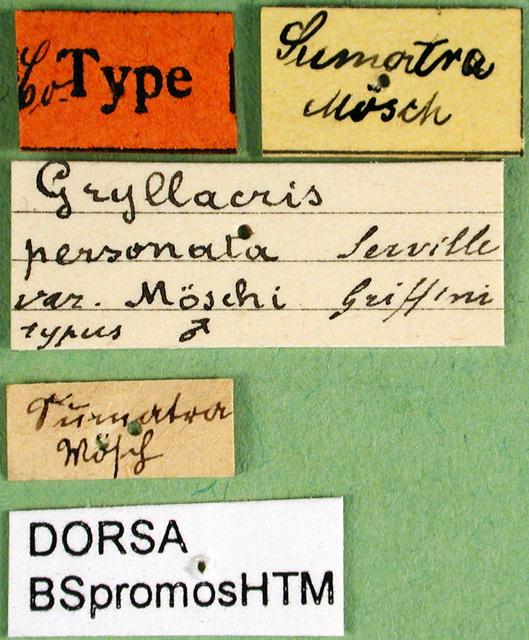 Co. Type
Sumatra
Mösch
Gryllacris
personata Serville
var. Möschi Griffini
typus ♂
Sumatra
Mösch
DORSA
BSpromosHTM